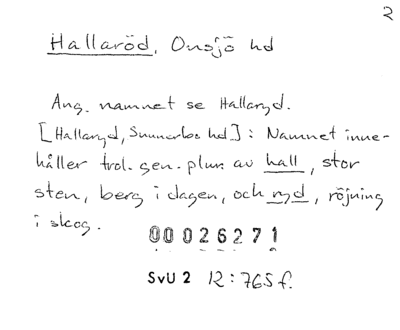 2
Hallaröd, Onsjö hd
Ang. namnet se Hallaryd.
[Hallaryd, Sunnerbo hd.]: Namnet inne-
håller trol. gen. plur. av hall, stor
sten, berg i dagen, och ryd, röjning
i skog.
00026271
SvU 2 12:765 f.